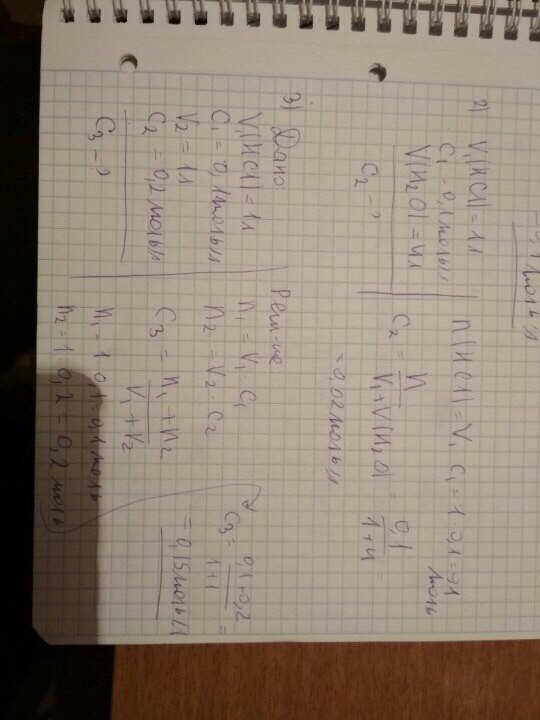 0,1 моль/л
2) V1(HCl) = 1л
C1 = 0,1моль/л
V(H2O) = 4л
C2 - ?
n(HCl) = V1 C1 = 1 · 0,1 = 0,1
моль
C2 = n / V1+V(H2O) = 0,1 / 1+4 =
= 0,02моль/л
3) Дано:
V1(HCl) = 1л
C1 = 0,1моль/л
V2 = 1л
C2 = 0,2моль/л
C3 - ?
Реш-ие
n1 = V1 · C1
n2 = V2 · C2
C3 = n1 + n2 / V1 + V2
n1 = 1 · 0,1 = 0,1моль
n2 = 1 · 0,2 = 0,2 моль
C3 = 0,1+0,2 / 1+1 =
= 0,15моль/л